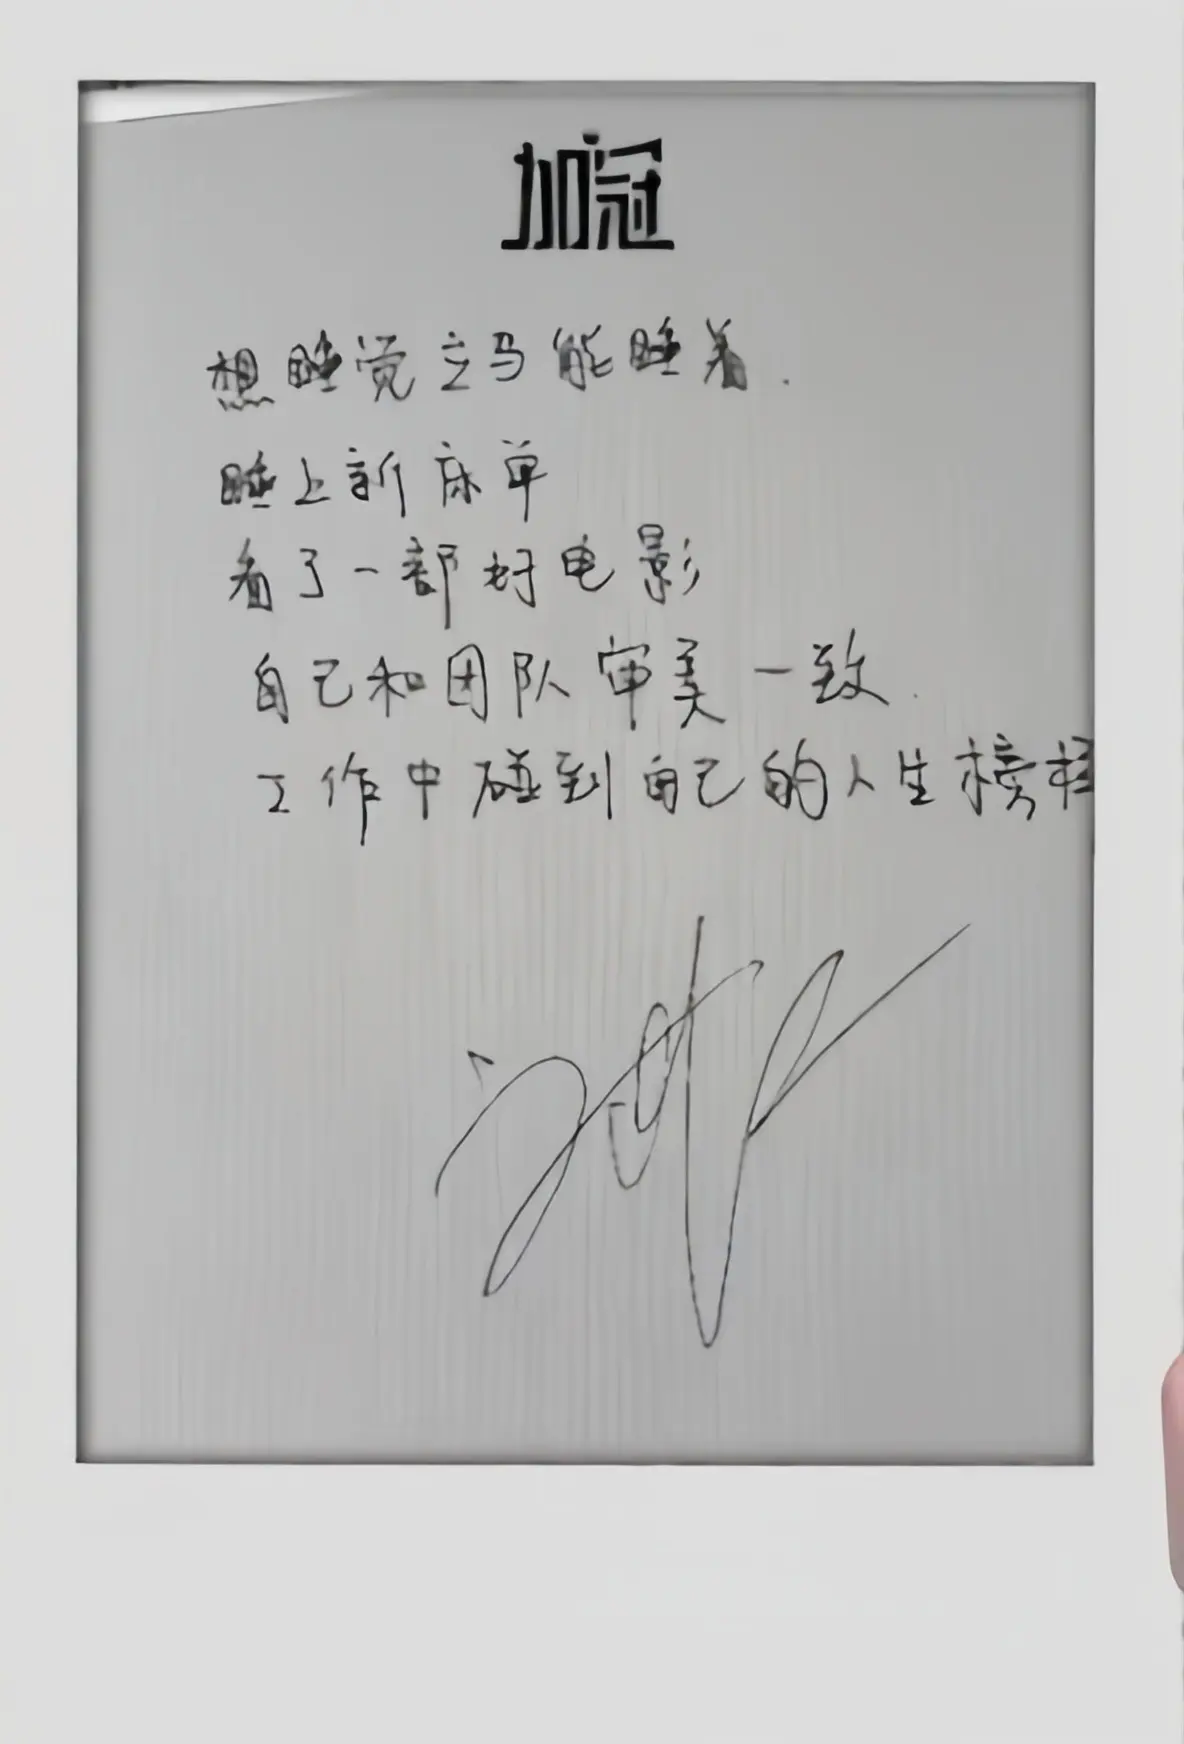 加冠
想睡觉立马能睡着.
睡上新床单
看了一部好电影
自己和团队审美一致.
工作中碰到自己的人生榜样